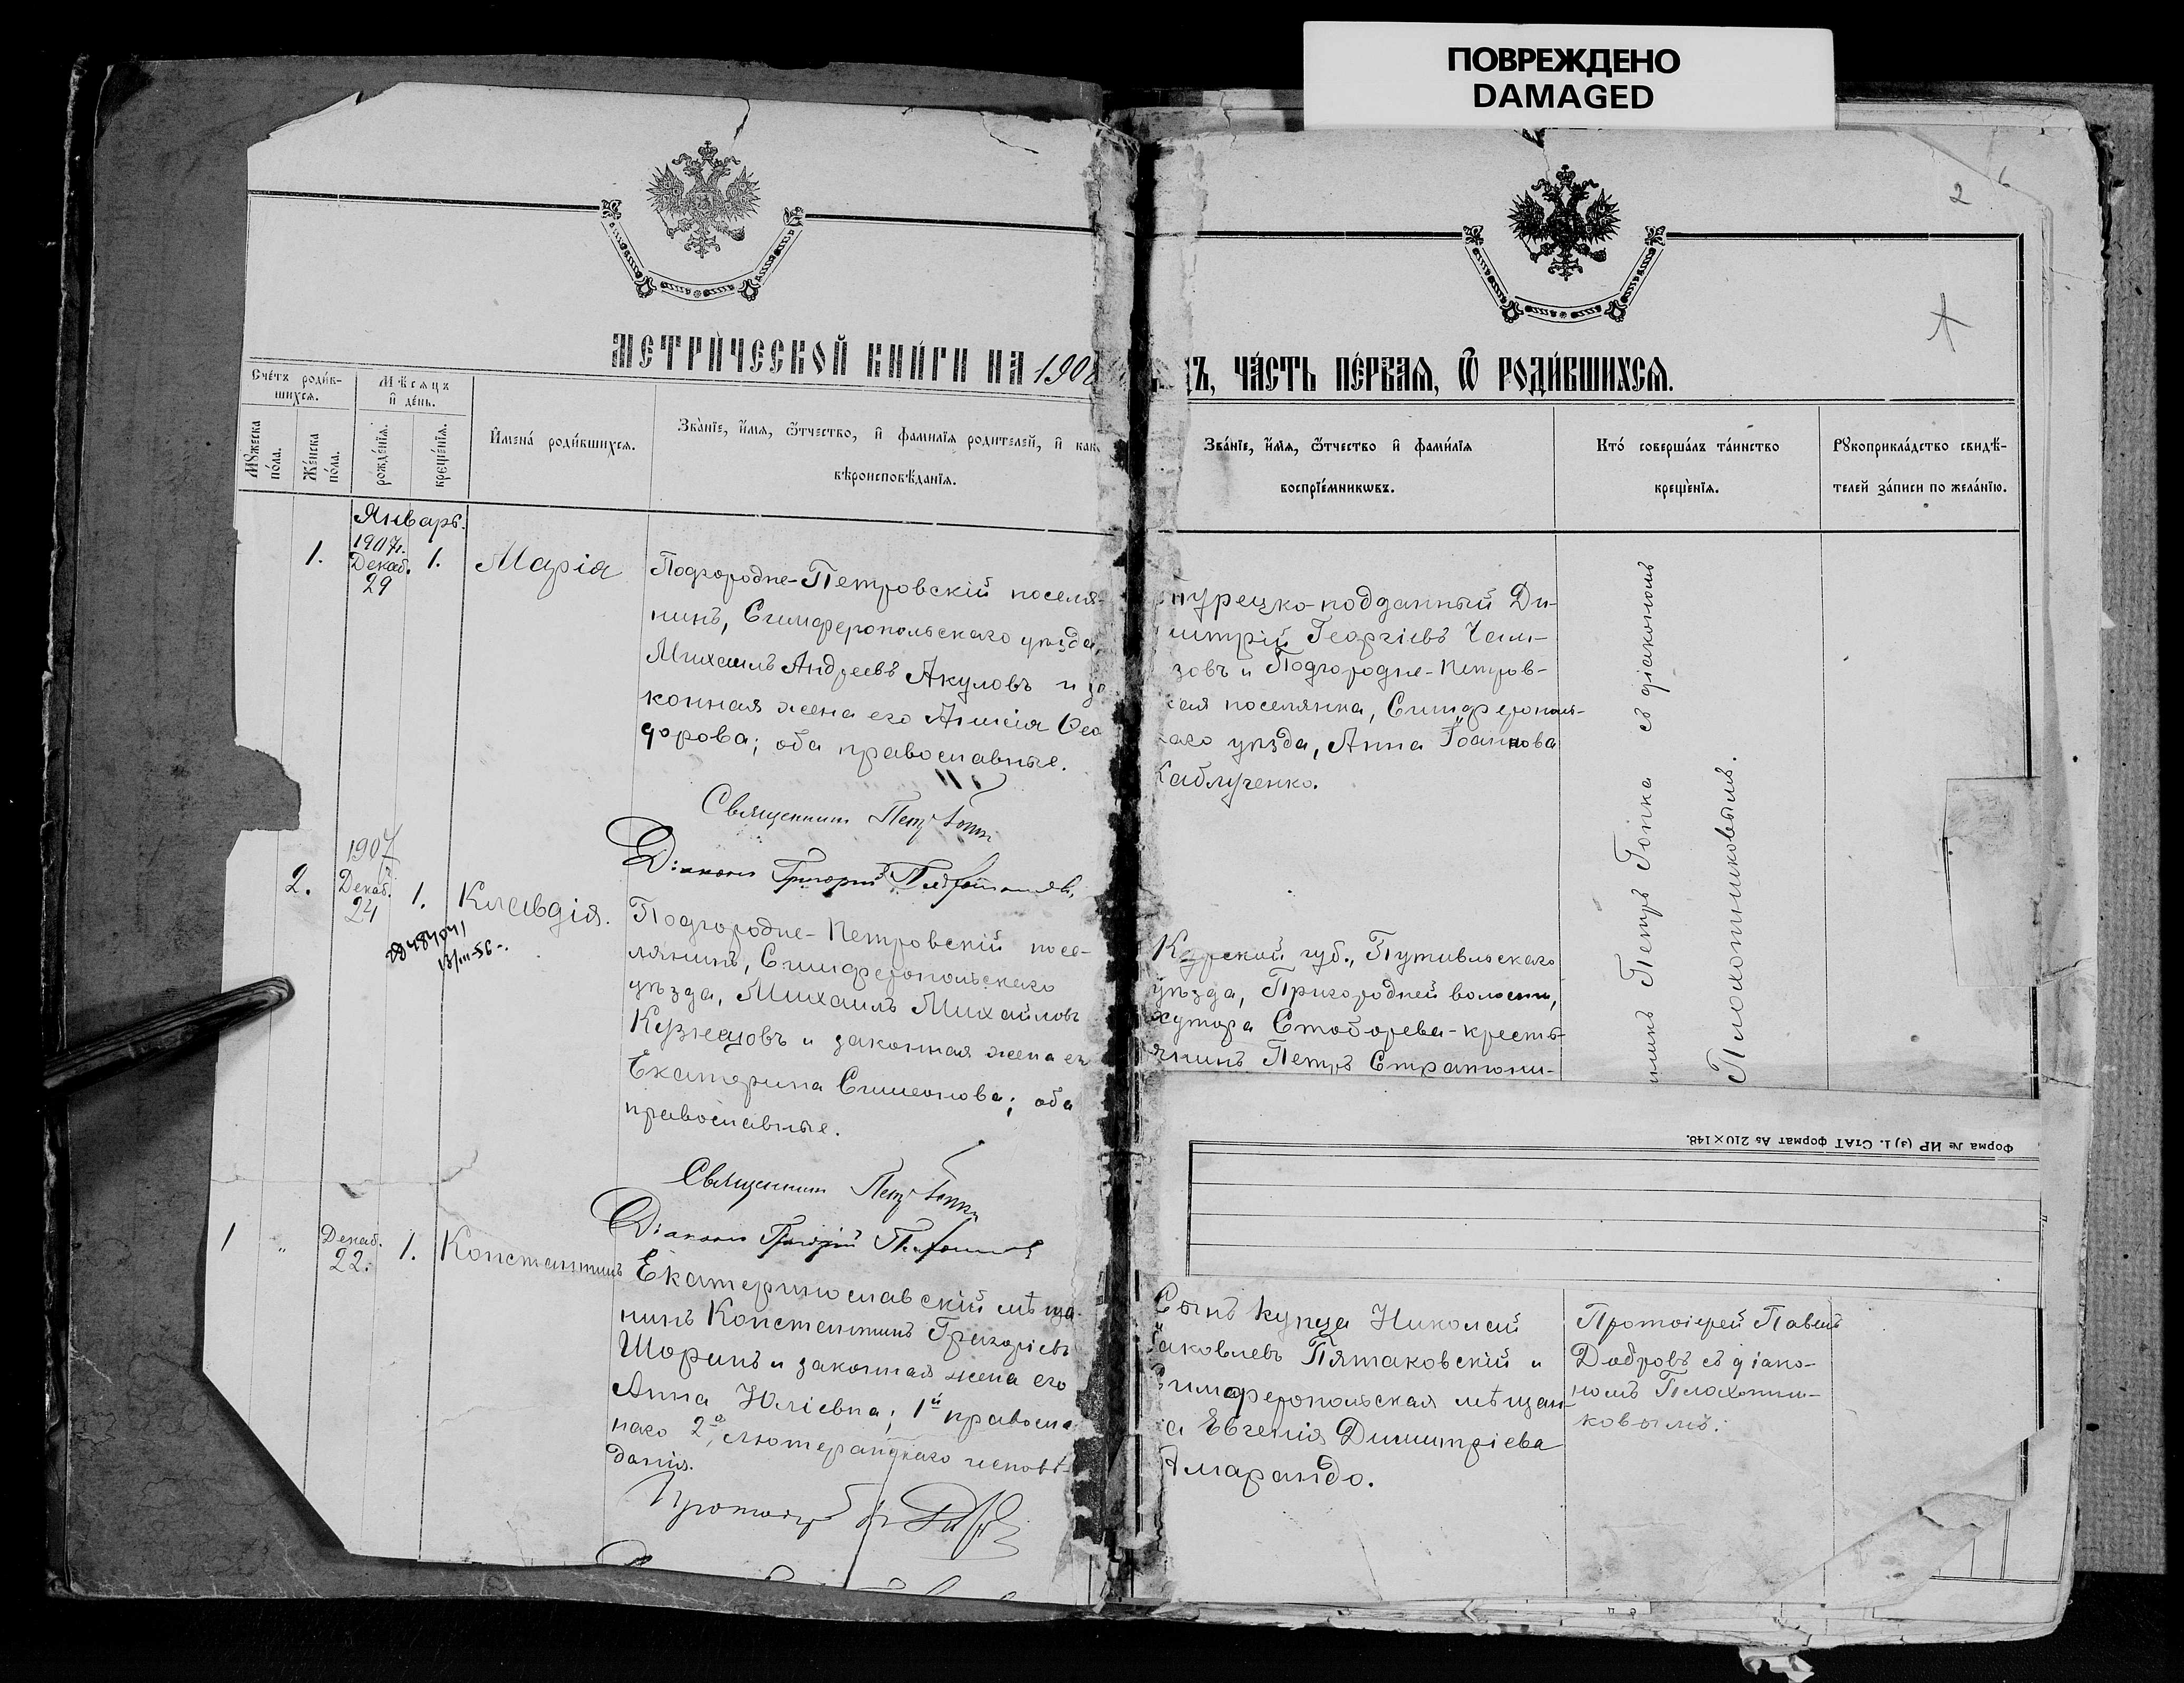 ПОВРЕЖДЕНО
DAMAGED
2
МЕТРИ́ЧЕСКОЙ КНИ́ГИ НА 1908
ЧА́СТЬ ПЕ́РВАЯ, Ѿ РОДИ́ВШИХСЯ.
Сче́тъ роди́в-
шихся.
Мѣсяцъ
и҆ де́нь.
Мꙋжеска
по́ла.
Же́нска
по́ла.
рожде́нїя.
креще́нїя.
И҆мена̀ роди́вшихся.
Зва́нїе, и҆́мя, ѻ҆́тчество, и҆ фами́лїя роди́телей, и҆
вѣроисповѣ́данїя.
Зва́нїе, и҆́мя, ѻ҆́тчество и҆ фами́лїя
воспрїе́мникѡвъ.
Кто́ соверша́лъ та́инство
креще́нїя.
Рꙋкоприкла́дство свидѣ́-
телей за́писи по жела́нїю.
Январь.
1.
1907г.
Декаб.
29
1.
Марія
Подгородне-Петровскій поселя-
нинъ, Симферопольскаго уѣзда,
Михаилъ Андреевъ Акуловъ и за
конная жена его Анисія Ѳео
дорова; оба православные.
Священникъ Петръ Гопка
Діаконъ Григорій Плохотниковъ
турецко-подданный Ди-
митрій Георгіевъ Чали-
зовъ и Подгородне-Петров-
кая поселянка, Симферополь-
каго уѣзда, Анна Іоаннова
Каблученко.
никъ Петръ Гопка съ діакономъ
Плохотниковымъ.
2.
1907
Декаб.
24
1.
Клавдія.
13/III-56-.
Подгородне-Петровскій посе-
лянинъ, Симферопольскаго
уѣзда, Михаилъ Михайловъ
Кузнецовъ и законная жена его
Екатерина Симеонова; оба
православные.
Священникъ Петръ Гопка
Діаконъ Григорій Плохотниковъ
Курской губ., Путивльскаго
уѣзда, Пригородней волости,
хутора Стоборева-кресть-
янинъ Петръ Стратони-
Форма № ИР (з) 1. СтАТ формат А5 210×148.
1
"
Декаб.
22.
1.
Константинъ
Екатеринославскій мѣща-
нинъ Константинъ Григорьевъ
Шоринъ и законная жена его
Анна Юліевна; 1й правосла
наго 2я, лютеранскаго исповѣ-
данія.
Протоіерей
Сынъ купца Николай
Іаковлевъ Пятаковскій и
Симферопольская мѣщан-
ка Евгенія Димитріева
Амарандо.
Протоіерей Павелъ
Добровъ съ діако-
номъ Плохотни-
ковымъ.